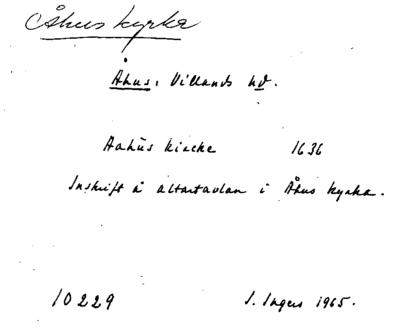 Åhus kyrka
Åhus, Villands hd.
Aahus kircke 1636
Inskrift å altartavlan i Åhus kyrka.
10229 I. Ingers 1965.